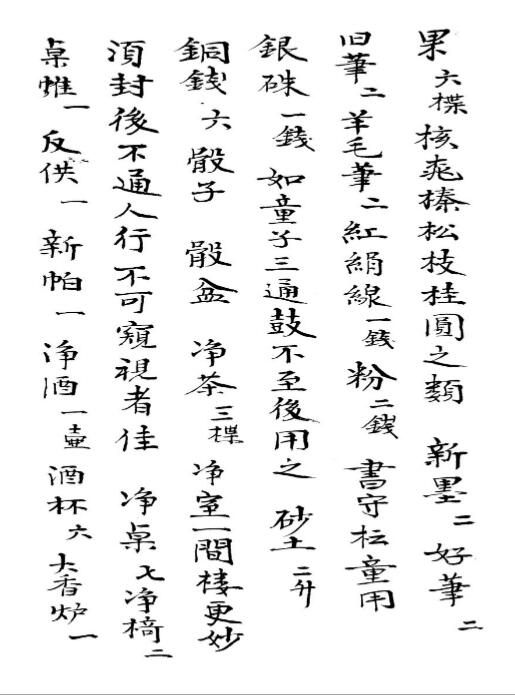 果六楪核桃榛松枝桂圓之類 新墨二好筆二
旧筆二羊毛筆二紅絹線一錢粉二錢書守枟童用
銀硃一錢如童子三通鼓不至後用之 砂土二升
銅錢六骰子 骰盆 净茶三楪净室一間楼更妙
湏封後不通人行不可窺視者佳 净桌七净椅二
桌帷一反供一新帕一净酒一壷酒杯六大香炉一